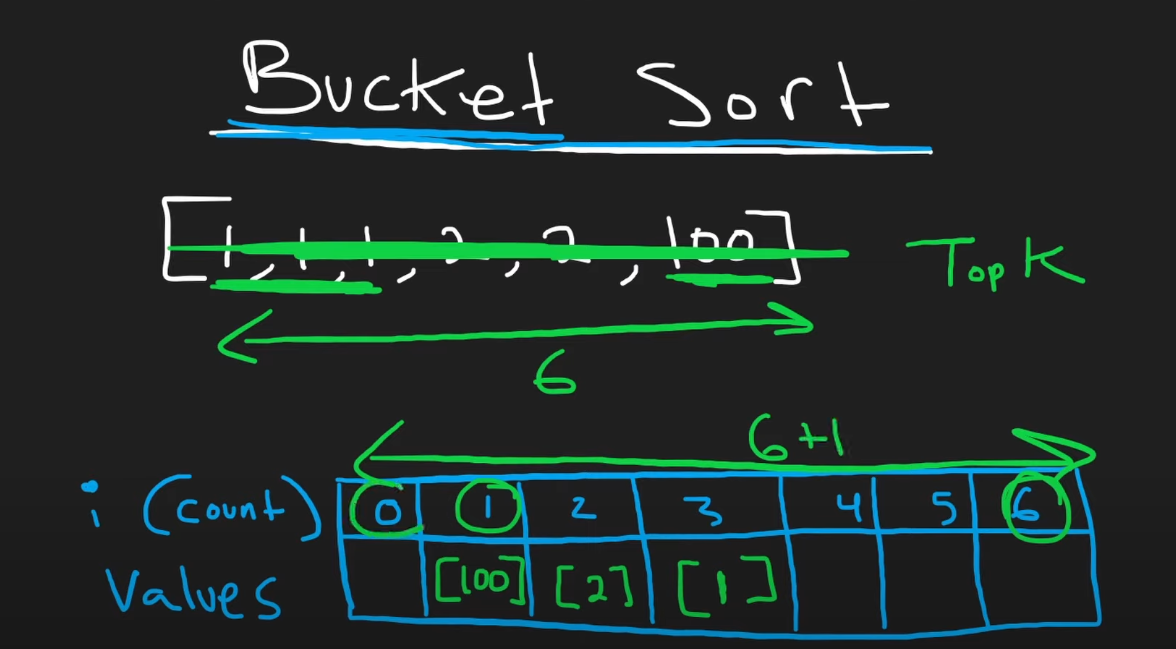 Bucket Sort
[1, 1, 1, 2, 2, 100] Top K
6
6+1
i (count) 0 1 2 3 4 5 6
Values [100] [2] [1]